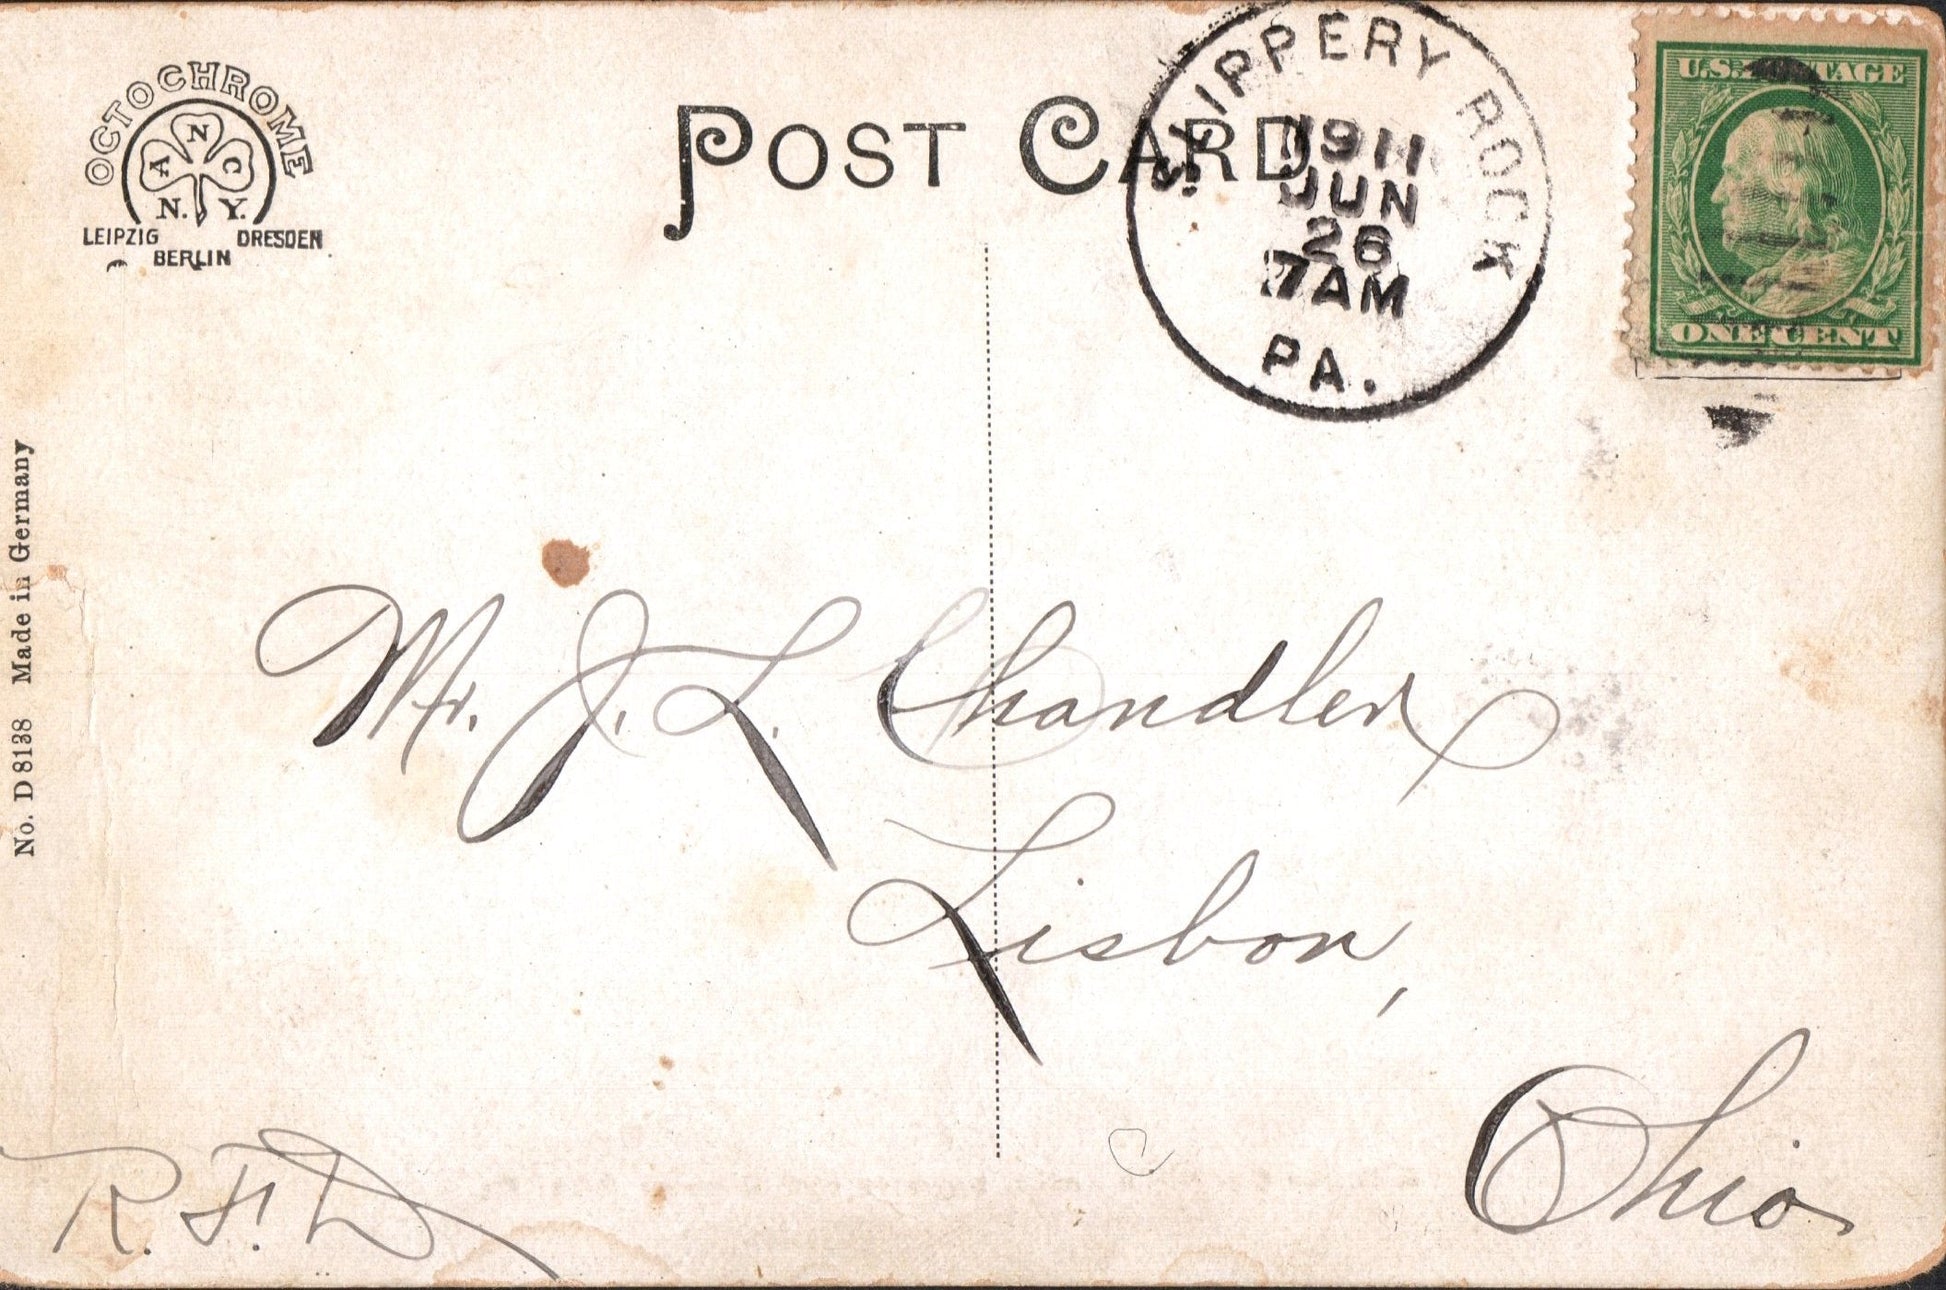 OCTOCHROME
N
A C
N. Y.
LEIPZIG DRESDEN
BERLIN
POST CARD
SLIPPERY ROCK
1911
JUN
26
7AM
PA.
U.S. POSTAGE
ONE CENT
No. D 8138 Made in Germany
Mr. J. L. Chandler
Lisbon,
Ohio
R. F. D